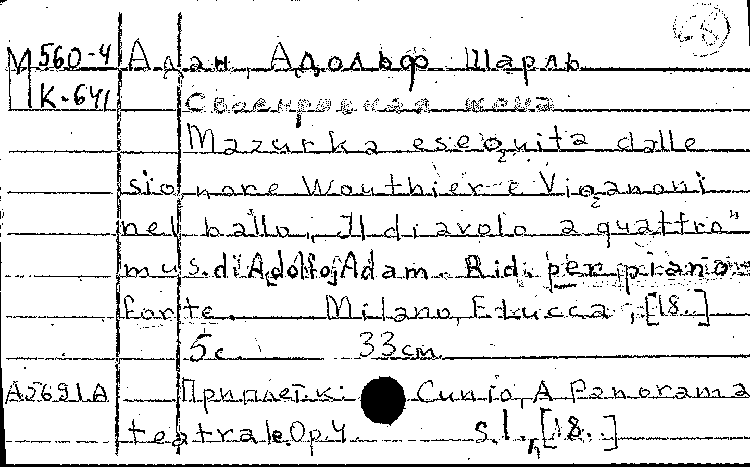 68
М 560-4 Адан, Адольф Шарль
К-641 Своенравная жена
Mazurka eseguita dalle
signore Wouthier e Viganoni
nel ballo „Il diavolo a quattro"
mus. di Adolfo Adam. Rid. per piano-
forte. Milano, F. Lucca, [18..]
5 с. 33 см.
А5691А Приплет. к: Cunio, A. Panorama
teatrale. Op. 4. S. l., [18..]